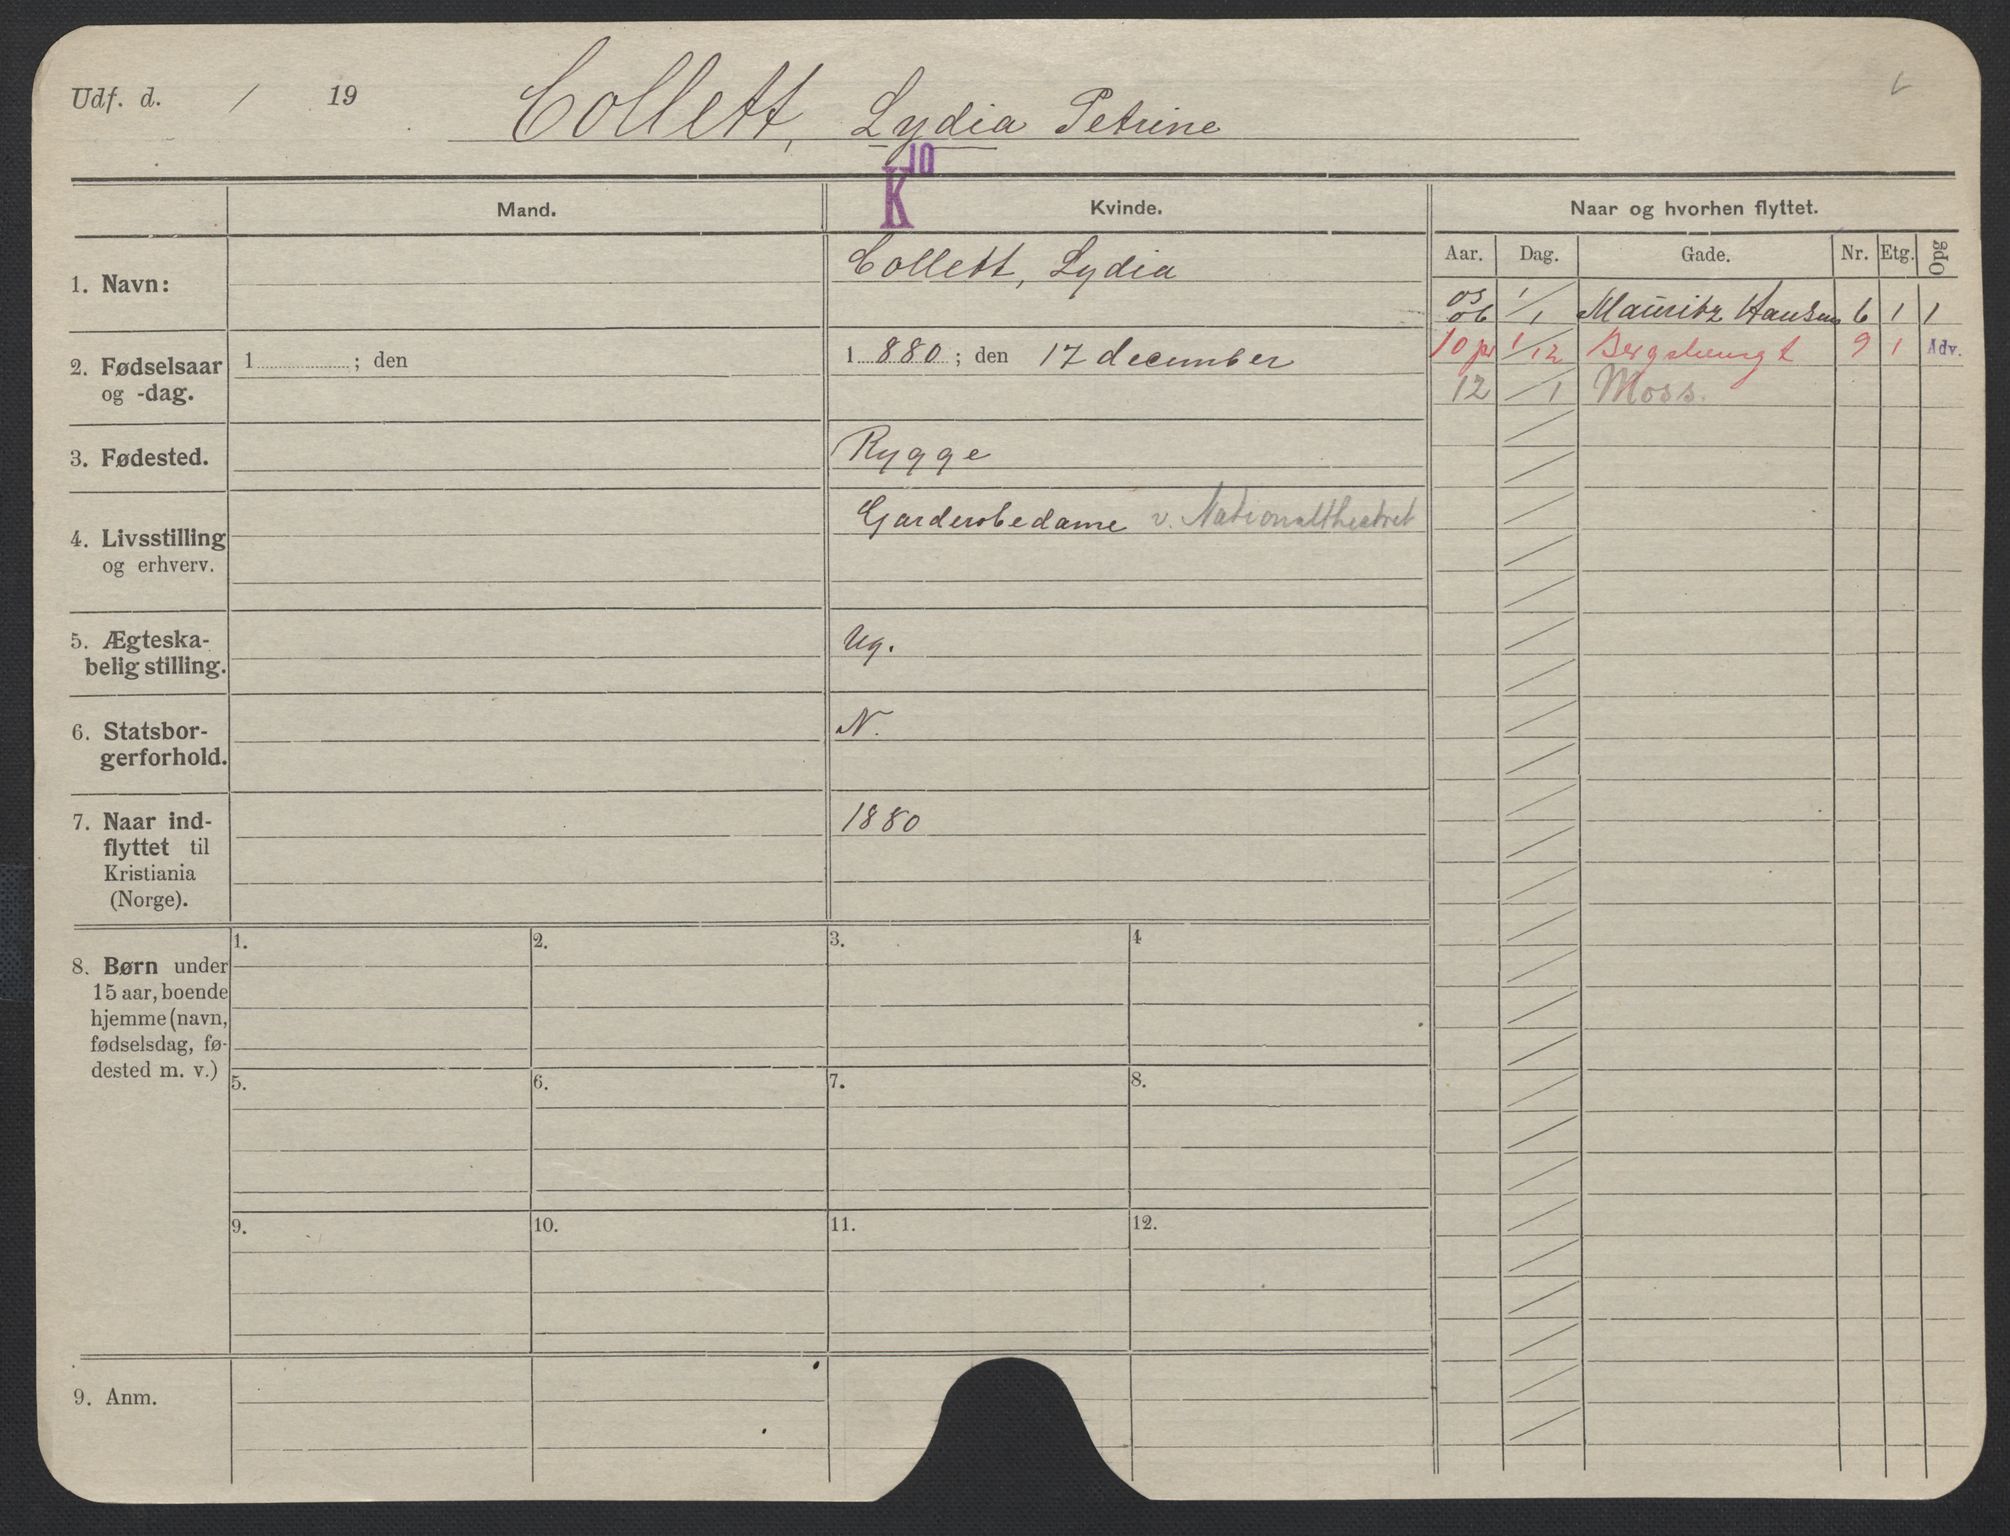 Udf. d. / 19 Collett, Lydia Petrine
K10
Mand. Kvinde. Naar og hvorhen flyttet.
Aar. Dag. Gade. Nr. Etg. Opg
1. Navn: Collett, Lydia
05
06 1/1 Mauritz Hansens 6 1 1
10 1/12 Bergsliensgt 9 1 Adv.
12 /1 Moss.
2. Fødselsaar
og -dag.
1 ; den
1 880 ; den 17 december
3. Fødested. Rygge
4. Livsstilling
og erhverv.
Garderobedame v. Nationaltheatret
5. Ægteska-
belig stilling.
Ug.
6. Statsbor-
gerforhold.
N.
7. Naar ind-
flyttet til
Kristiania
(Norge).
1880
8. Børn under
15 aar, boende
hjemme (navn,
fødselsdag, fø-
dested m. v.)
1. 2. 3. 4
5. 6. 7. 8.
9. 10. 11. 12.
9. Anm.